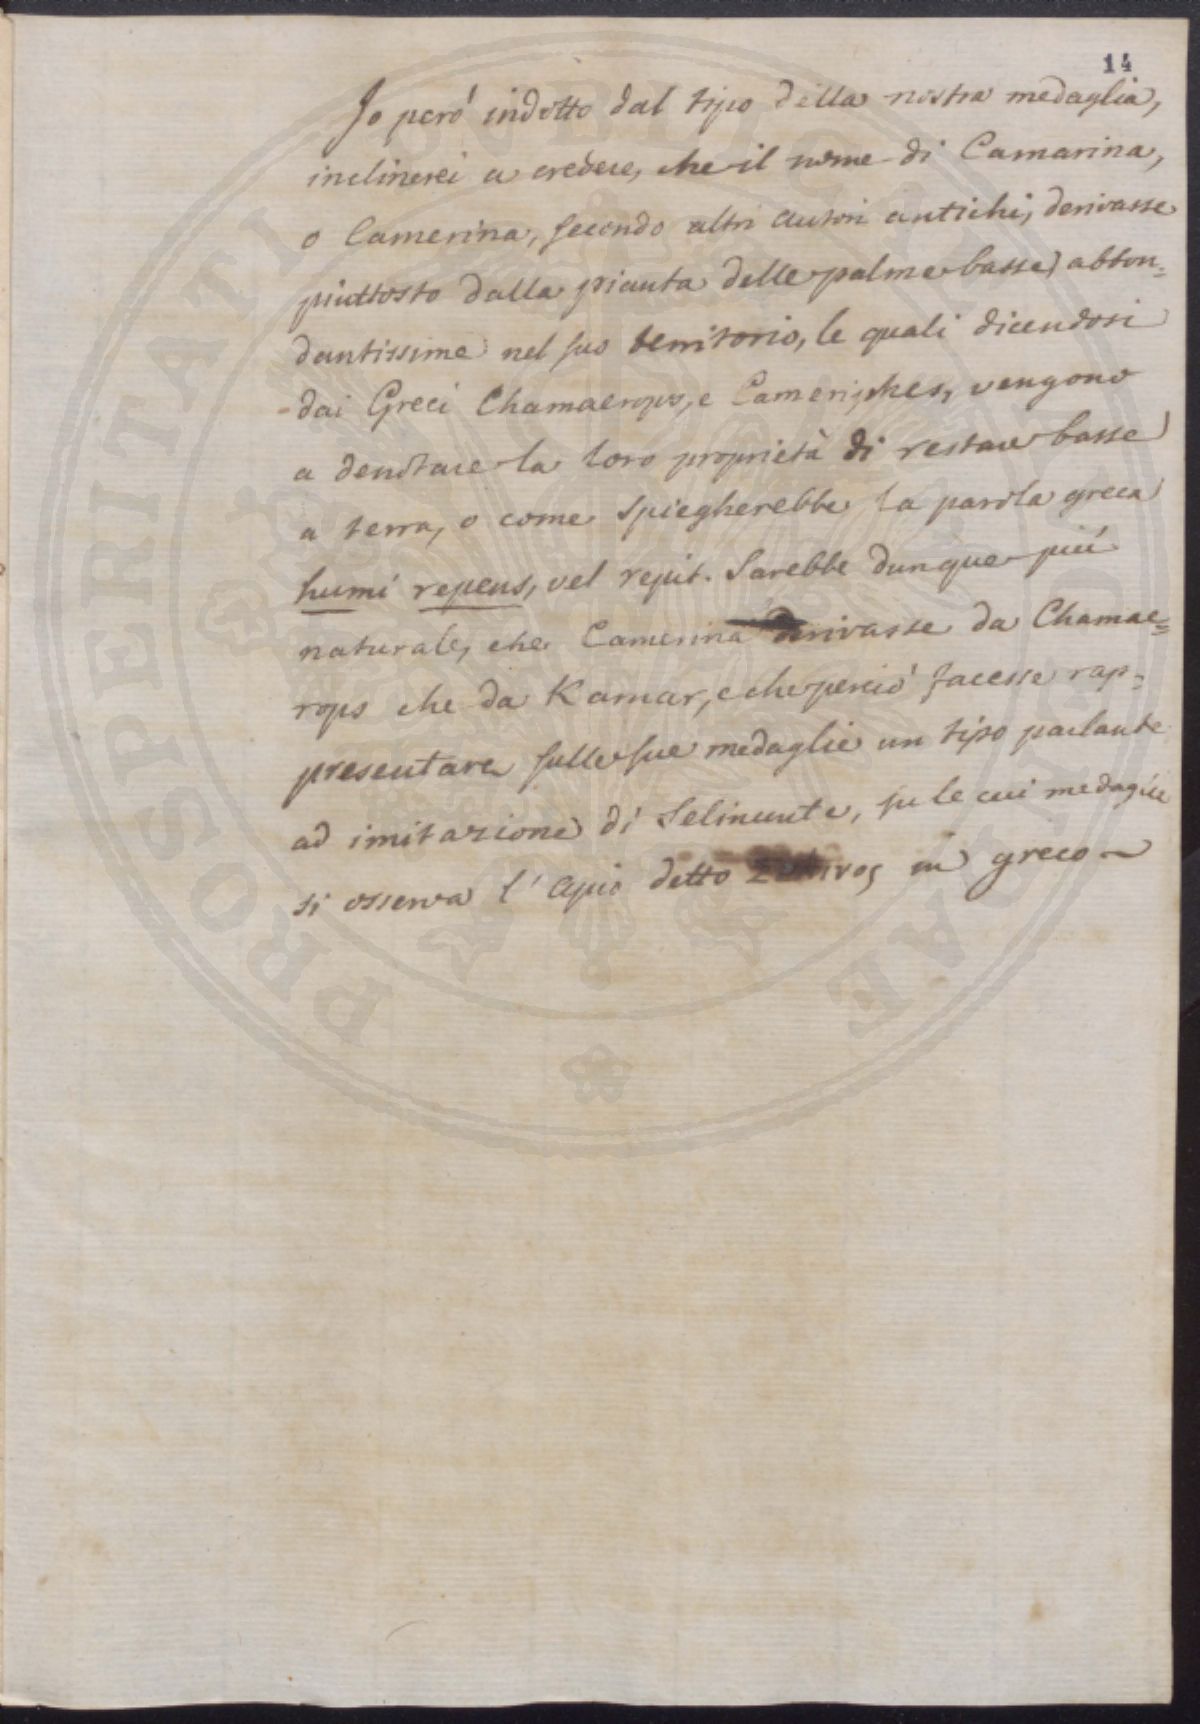 14
Jo peró indotto dal tipo della nostra medaglia,
inclinerei a credere, che il nome di Camarina,
o Camerina, secondo altri autori antichi, derivasse
piuttosto dalla pianta delle palme basse, abbon=
dantissime nel suo territorio, le quali dicendosi
dai Greci Chamaerops, e Cameriphes, vengono
a denotare la loro proprietà di restare basse
a terra, o come spiegherebbe la parola greca
humi repens, vel repit. Sarebbe dunque piú
naturale, che Camerina derivasse da Chamae=
rops che da Kamar, e che perció facesse rap=
presentare sulle sue medaglie un tipo parlante
ad imitazione di Selinunte, su le cui medaglie
si osserva l' apio detto in greco
PROSPERITATI PUBLICAE